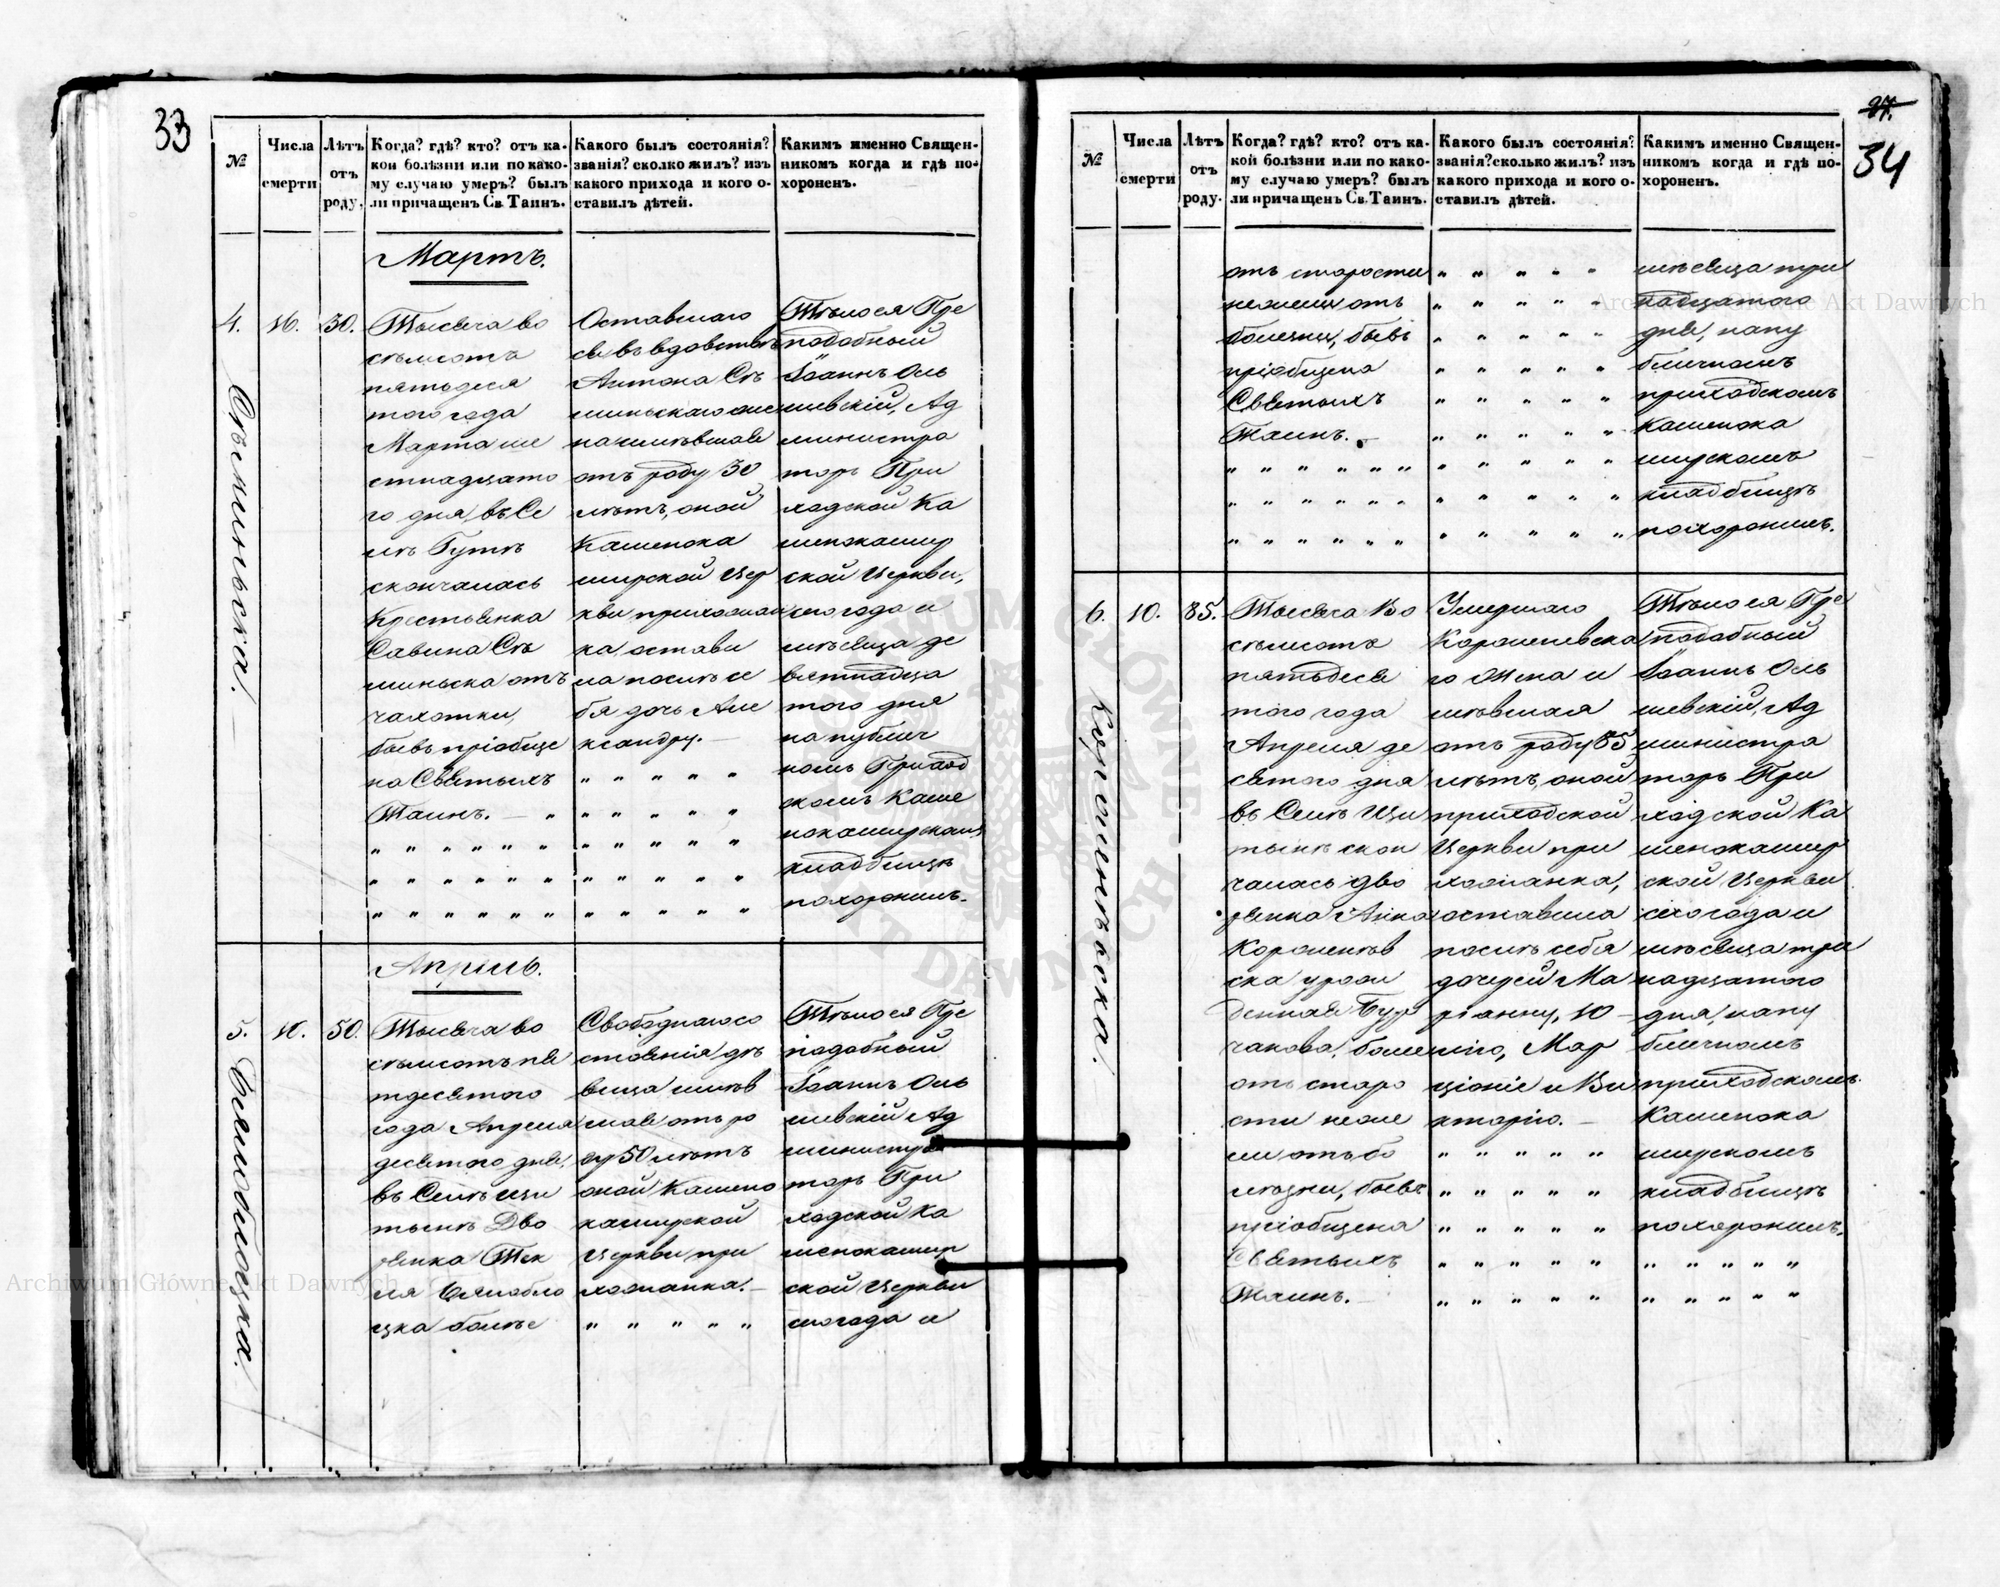 33
№
Числа смерти
Лѣтъ отъ роду.
Когда? гдѣ? кто? отъ ка-
кои болѣзни или по како-
му случаю умеръ? былъ
ли причащенъ Св. Таинъ.
Какого былъ состоянія?
званія? сколко жилъ? изъ
какого прихода и кого о-
ставилъ дѣтей.
Какимъ именно Священ-
никомъ когда и гдѣ по-
хороненъ.
Мартъ.
4.
16.
30.
Тысяча во
сѣмсотъ
пятьдеся
того года
Марта ше
стнадцато
го дня, въ Се
лѣ Гутѣ
скончалась
Крестьянка
отъ
чахотки,
бывъ пріобще
на Святыхъ
Таинъ.
Оставшаго
ся въ вдовствѣ
Антона
отъ роду 30
лѣтъ, оной
Каменока
ширской Цер
кви прихожан
ка, остави
ла послѣ се
бя дочь Але
ксандру.
Тѣло ея Пре
подобный
Іоаннъ Оль
шевскій, Ад
министра
торъ При
ходской Ка
менокашир
ской Церкви,
сего года и
мѣсяца де
вятнадца
того дня
на публич
номъ Приход
скомъ Каме
нокаширскомъ
кладбищѣ
похоронилъ.
Апрѣль.
5.
10.
50.
Тысяча во
сѣмсотъ пя
тдесятого
года Апреля
десятого дня,
въ Селѣ Щи
тынѣ Дво
рянка Тек
ля
цка болѣе
Свободнаго со
стоянія дѣ
вица имѣв
шая отъ ро
ду 50 лѣтъ
оной Камено
каширской
Церкви при
хожанка.
Тѣло ея Пре
подобный
Іоаннъ Оль
шевскій Ад
министра
торъ При
ходской Ка
менокашир
ской Церкви
сего года и
34
№
Числа смерти
Лѣтъ отъ роду.
Когда? гдѣ? кто? отъ ка-
кой болѣзни или по како-
му случаю умеръ? былъ
ли причащенъ Св. Таинъ.
Какого былъ состоянія?
званія? сколько жилъ? изъ
какого прихода и кого о-
ставилъ дѣтей.
Какимъ именно Священ-
никомъ когда и гдѣ по-
хороненъ.
отъ старости
нежели отъ
болезни, бывъ
пріобщена
Святыхъ
Таинъ.
мѣсяца три
надцатого
дня, на пу
бличномъ
приходскомъ
Каменока
ширскомъ
кладбищѣ
похоронилъ.
6.
10.
85.
Тысяча во
сѣмсотъ
пятьдеся
того года
Апреля де
сятого дня
въ Селѣ Щи
тынѣ скон
чалась Дво
рянка Анна
ска урож
денная Бур
чакова, более
отъ старо
сти неже
ли отъ бо
лѣзни, бывъ
пріобщена
Святыхъ
Таинъ.
Умершаго
го Жена и
мѣвшая
отъ роду 85
лѣтъ, оной
приходской
Церкви при
хожанка,
оставила
послѣ себя
дочерей Ма
ріанну, Ю
лію, Мар
ціоніе и Ви
кторію.
Тѣло ея Пре
подобный
Іоаннъ Оль
шевскій, Ад
министра
торъ При
ходской Ка
менокашир
ской Церкви
сего года и
мѣсяца три
надцатого
дня, на пу
бличномъ
приходскомъ
Каменока
ширскомъ
кладбищѣ
похоронилъ.
Archiwum Główne Akt Dawnych
Archiwum Główne Akt Dawnych